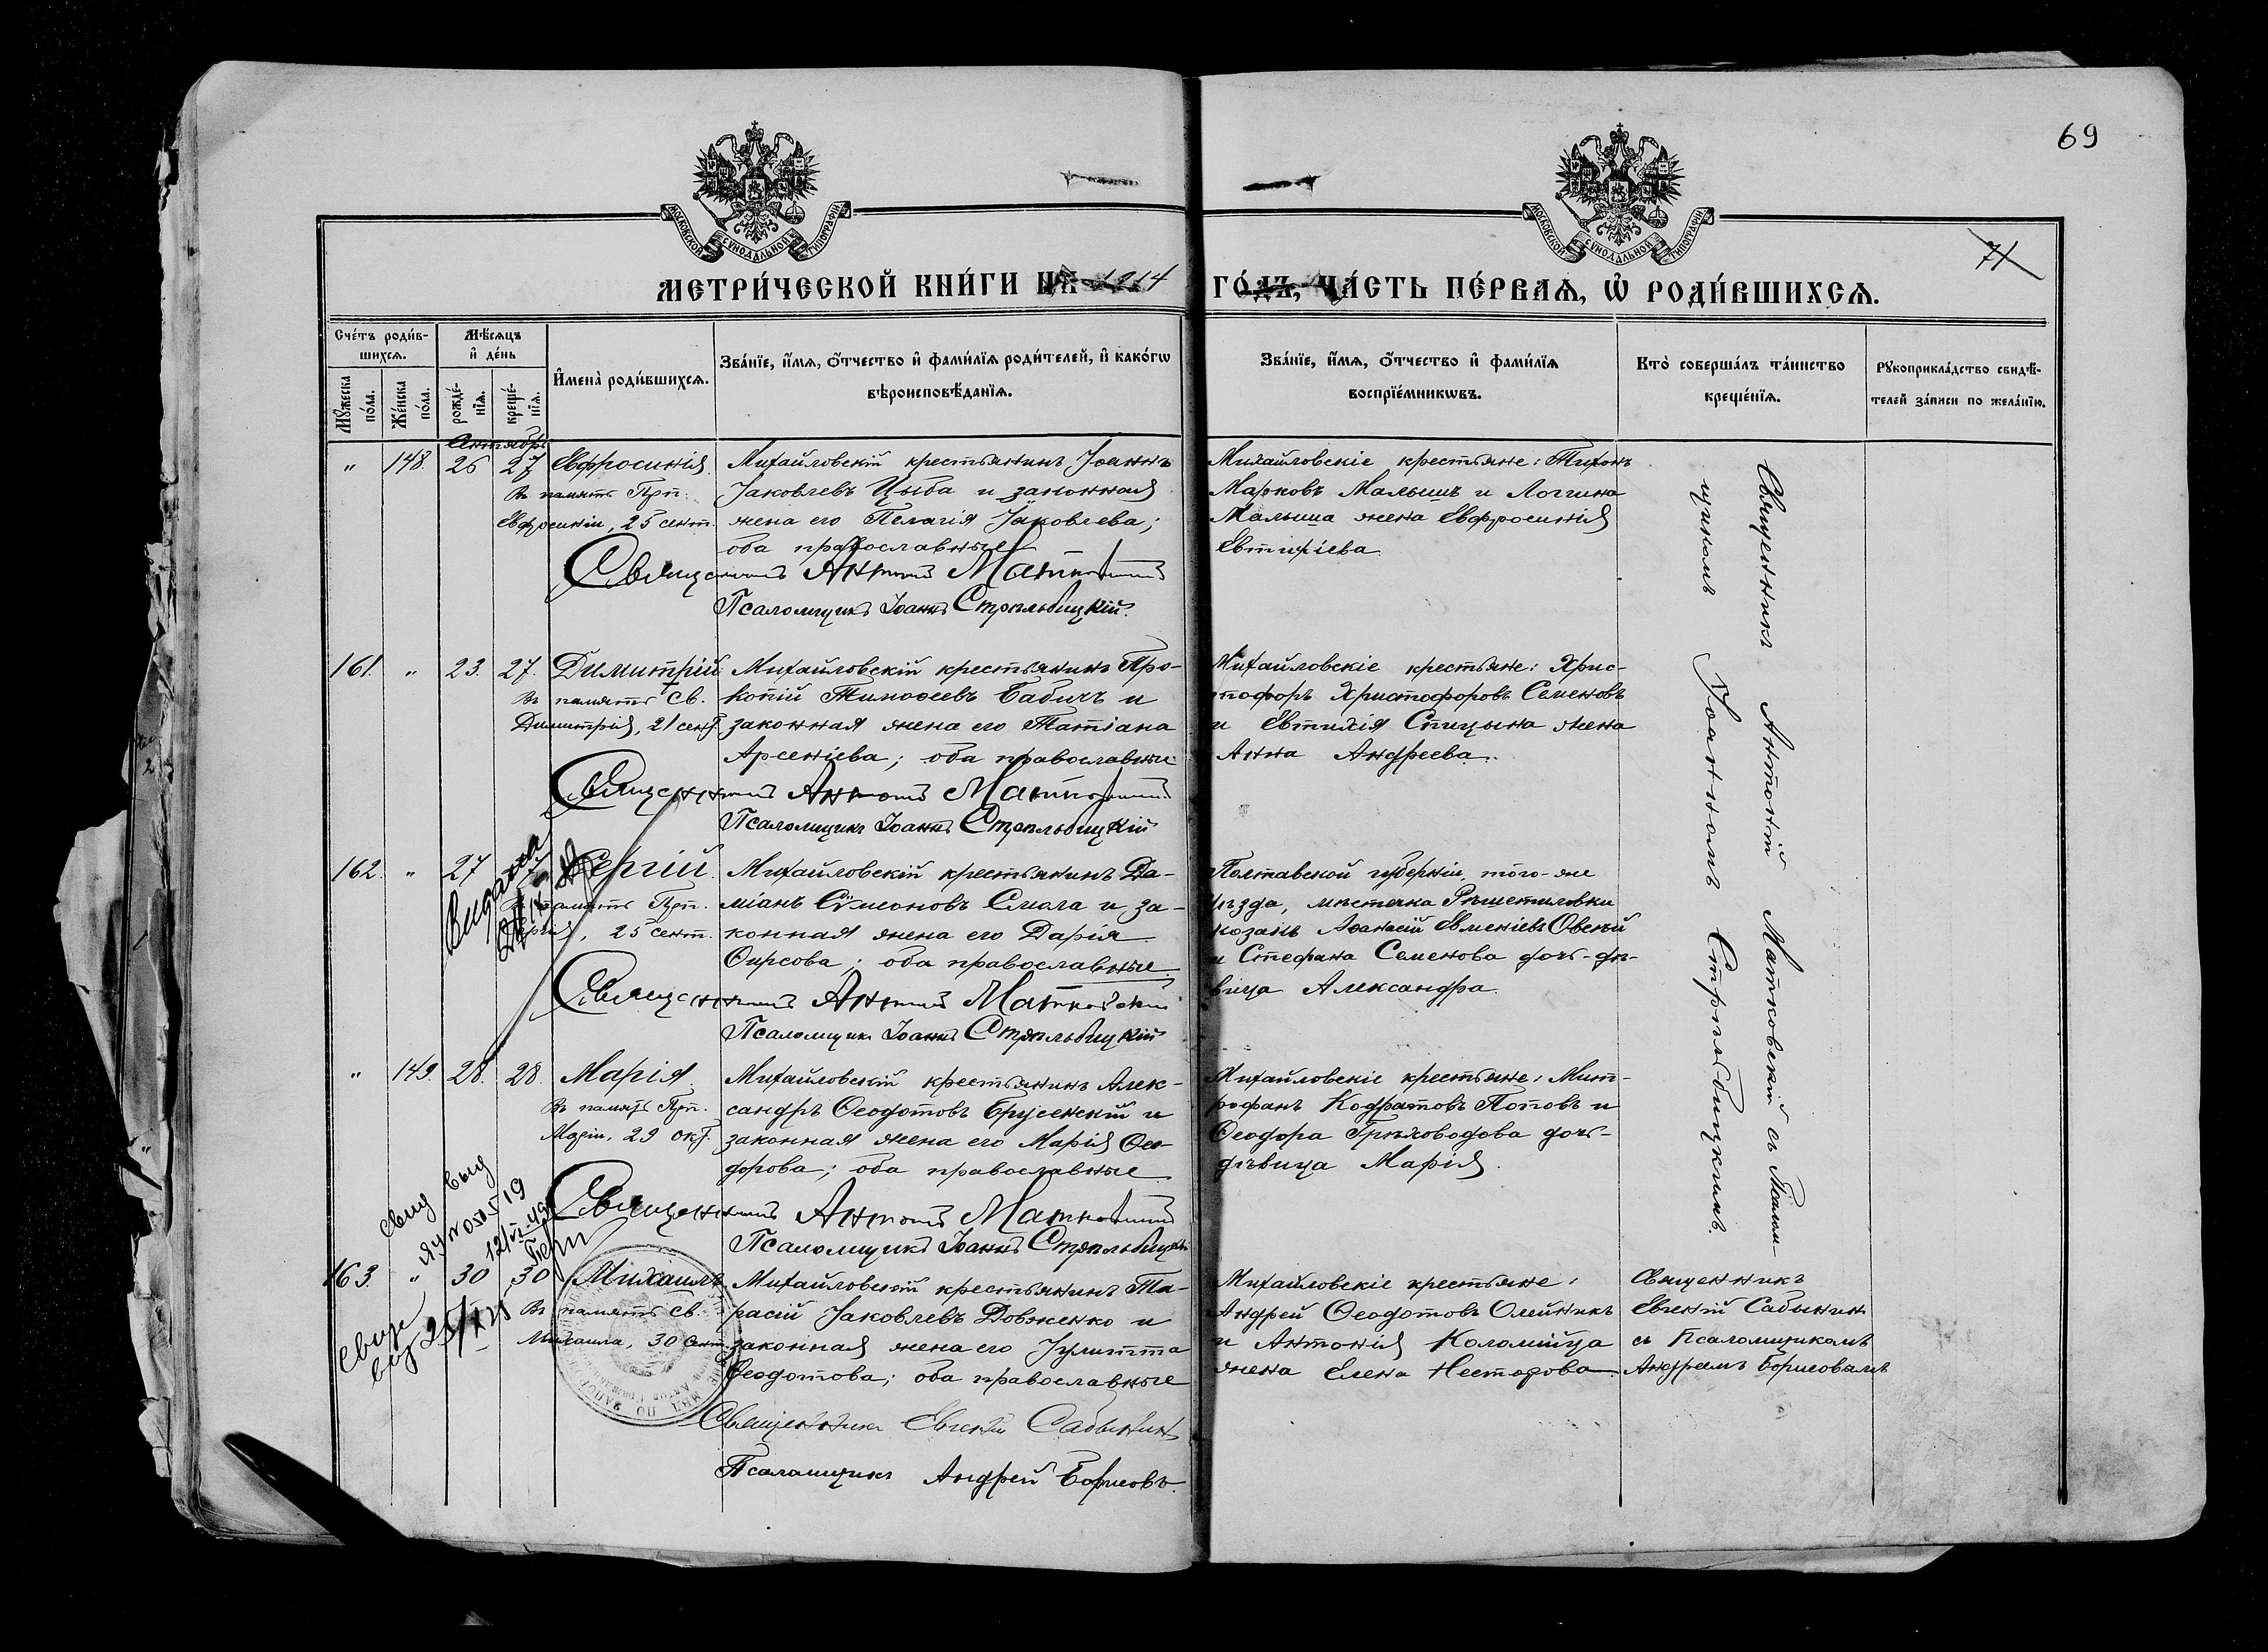 69
71
МОСКОВСКОЙ СѴНОДАЛЬНОЙ ТИПОГРАФІИ
МОСКОВСКОЙ СѴНОДАЛЬНОЙ ТИПОГРАФІИ
МЕТРИ́ЧЕСКОЙ КНИ́ГИ НА 1914 ГО́ДЪ, ЧА́СТЬ ПЕ́РВАЯ, Ѿ РОДИ́ВШИХСЯ.
Сче́тъ роди́в-
шихся.
Мѣ́сяцъ
и҆ де́нь
Мꙋ́жеска по́ла.
Же́нска по́ла.
рожде́-
нїя.
креще́-
нїя.
И҆мена̀ роди́вшихся.
Зва́нїе, и҆́мя, ѻ҆́тчество и҆ фами́лїя роди́телей, и҆ како́гѡ
вѣроисповѣ́данїя.
Зва́нїе, и҆́мя, ѻ҆́тчество и҆ фами́лїя
воспрїе́мникѡвъ.
Кто̀ соверша́лъ та́инство
креще́нїя.
Рꙋкоприкла́дство свидѣ́-
телей за́писи по жела́нїю.
" 148. 26 27 Евфросинія
Въ память Прп.
Евфросиніи, 25 сент.
Михайловскій крестьянинъ Іоаннъ
Іаковлевъ Цыба и законная
жена его Пелагія Іаковлева;
оба православные
Священникъ Антоній Матковскій
Псаломщикъ Іоаннъ Стрѣльбицкій.
Михайловскіе крестьяне: Тихонъ
Марковъ Малышъ и Логгина
Малыша жена Евфросинія
Евтихіева.
161. " 23. 27. Димитрій
Въ память Св.
Димитрія, 21 сент.
Михайловскій крестьянинъ Про-
копій Тимоѳеевъ Бабичъ и
законная жена его Татіана
Арсеніева; оба православные.
Священникъ Антоній Матковскій
Псаломщикъ Іоаннъ Стрѣльбицкій
Михайловскіе крестьяне: Хрис-
тофоръ Христофоровъ Семеновъ
и Евтихія Спицына жена
Анна Андреева.
162. " 27 27 Сергій.
память Прп.
Сергія, 25 сент.
Михайловскій крестьянинъ Да-
міанъ Сѵмеоновъ Смага и за-
конная жена его Дарія
Ѳирсова; оба православные.
Священникъ Антоній Матковскій
Псаломщикъ Іоаннъ Стрѣльбицкій
Полтавской губерніи, того-же
уѣзда, мѣстечка Рѣшетиловки
козакъ Аѳанасій Евменіевъ Овсѣй
и Стефана Семенова дочь-дѣ-
вица Александра.
Выдана
" 149. 28. 28. Марія.
Въ память Прп.
Маріи, 29 окт.
Михайловскій крестьянинъ Алек-
сандръ Ѳеодотовъ Брусенскій и
законная жена его Марія Ѳео-
дорова; оба православные
Священникъ Антоній Матковскій
Псаломщикъ Іоаннъ Стрѣльбицкій
Михайловскіе крестьяне: Мит-
рофанъ Кодратовъ Поповъ и
Ѳеодора Грѣховодова дочь-
дѣвица Марія.
Священникъ Антоній Матковскій съ Псалом-
щикомъ Іоанномъ Стрѣльбицкимъ.
163. " 30 30 Михаилъ
Въ память Св.
Михаила, 30 сент.
Михайловскій крестьянинъ Та-
расій Іаковлевъ Довженко и
законная жена его Іулитта
Ѳеодотова; оба православные
Священникъ Евгеній Сабынинъ
Псаломщикъ Андрей Борисовъ.
Михайловскіе крестьяне:
Андрей Ѳеодотовъ Олейникъ
и Антонія Коломійца
жена Елена Несторова.
Священникъ
Евгеній Сабынин
съ Псаломщикомъ
Андреемъ Борисовымъ